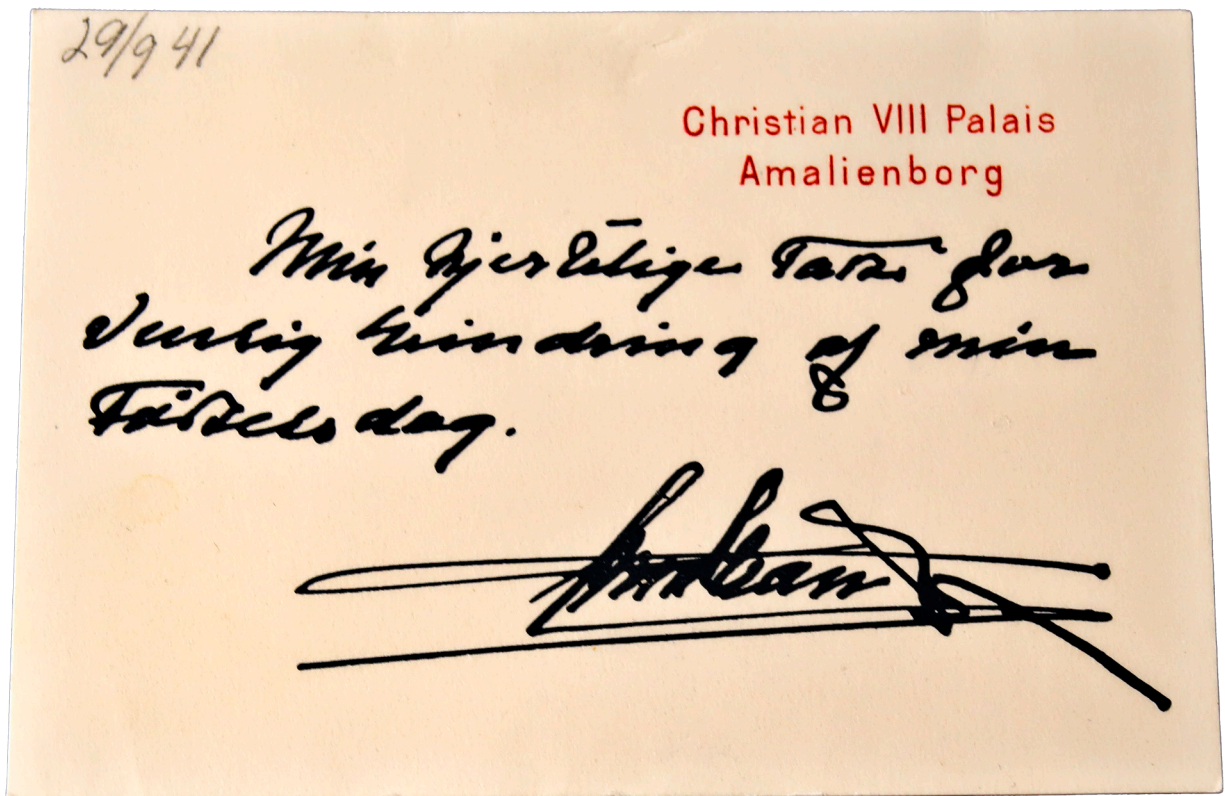 29/9 41
Christian VIII Palais
Amalienborg
Min hjertelige Tak for
venlig Erindring af min
Fødselsdag.
Christian R